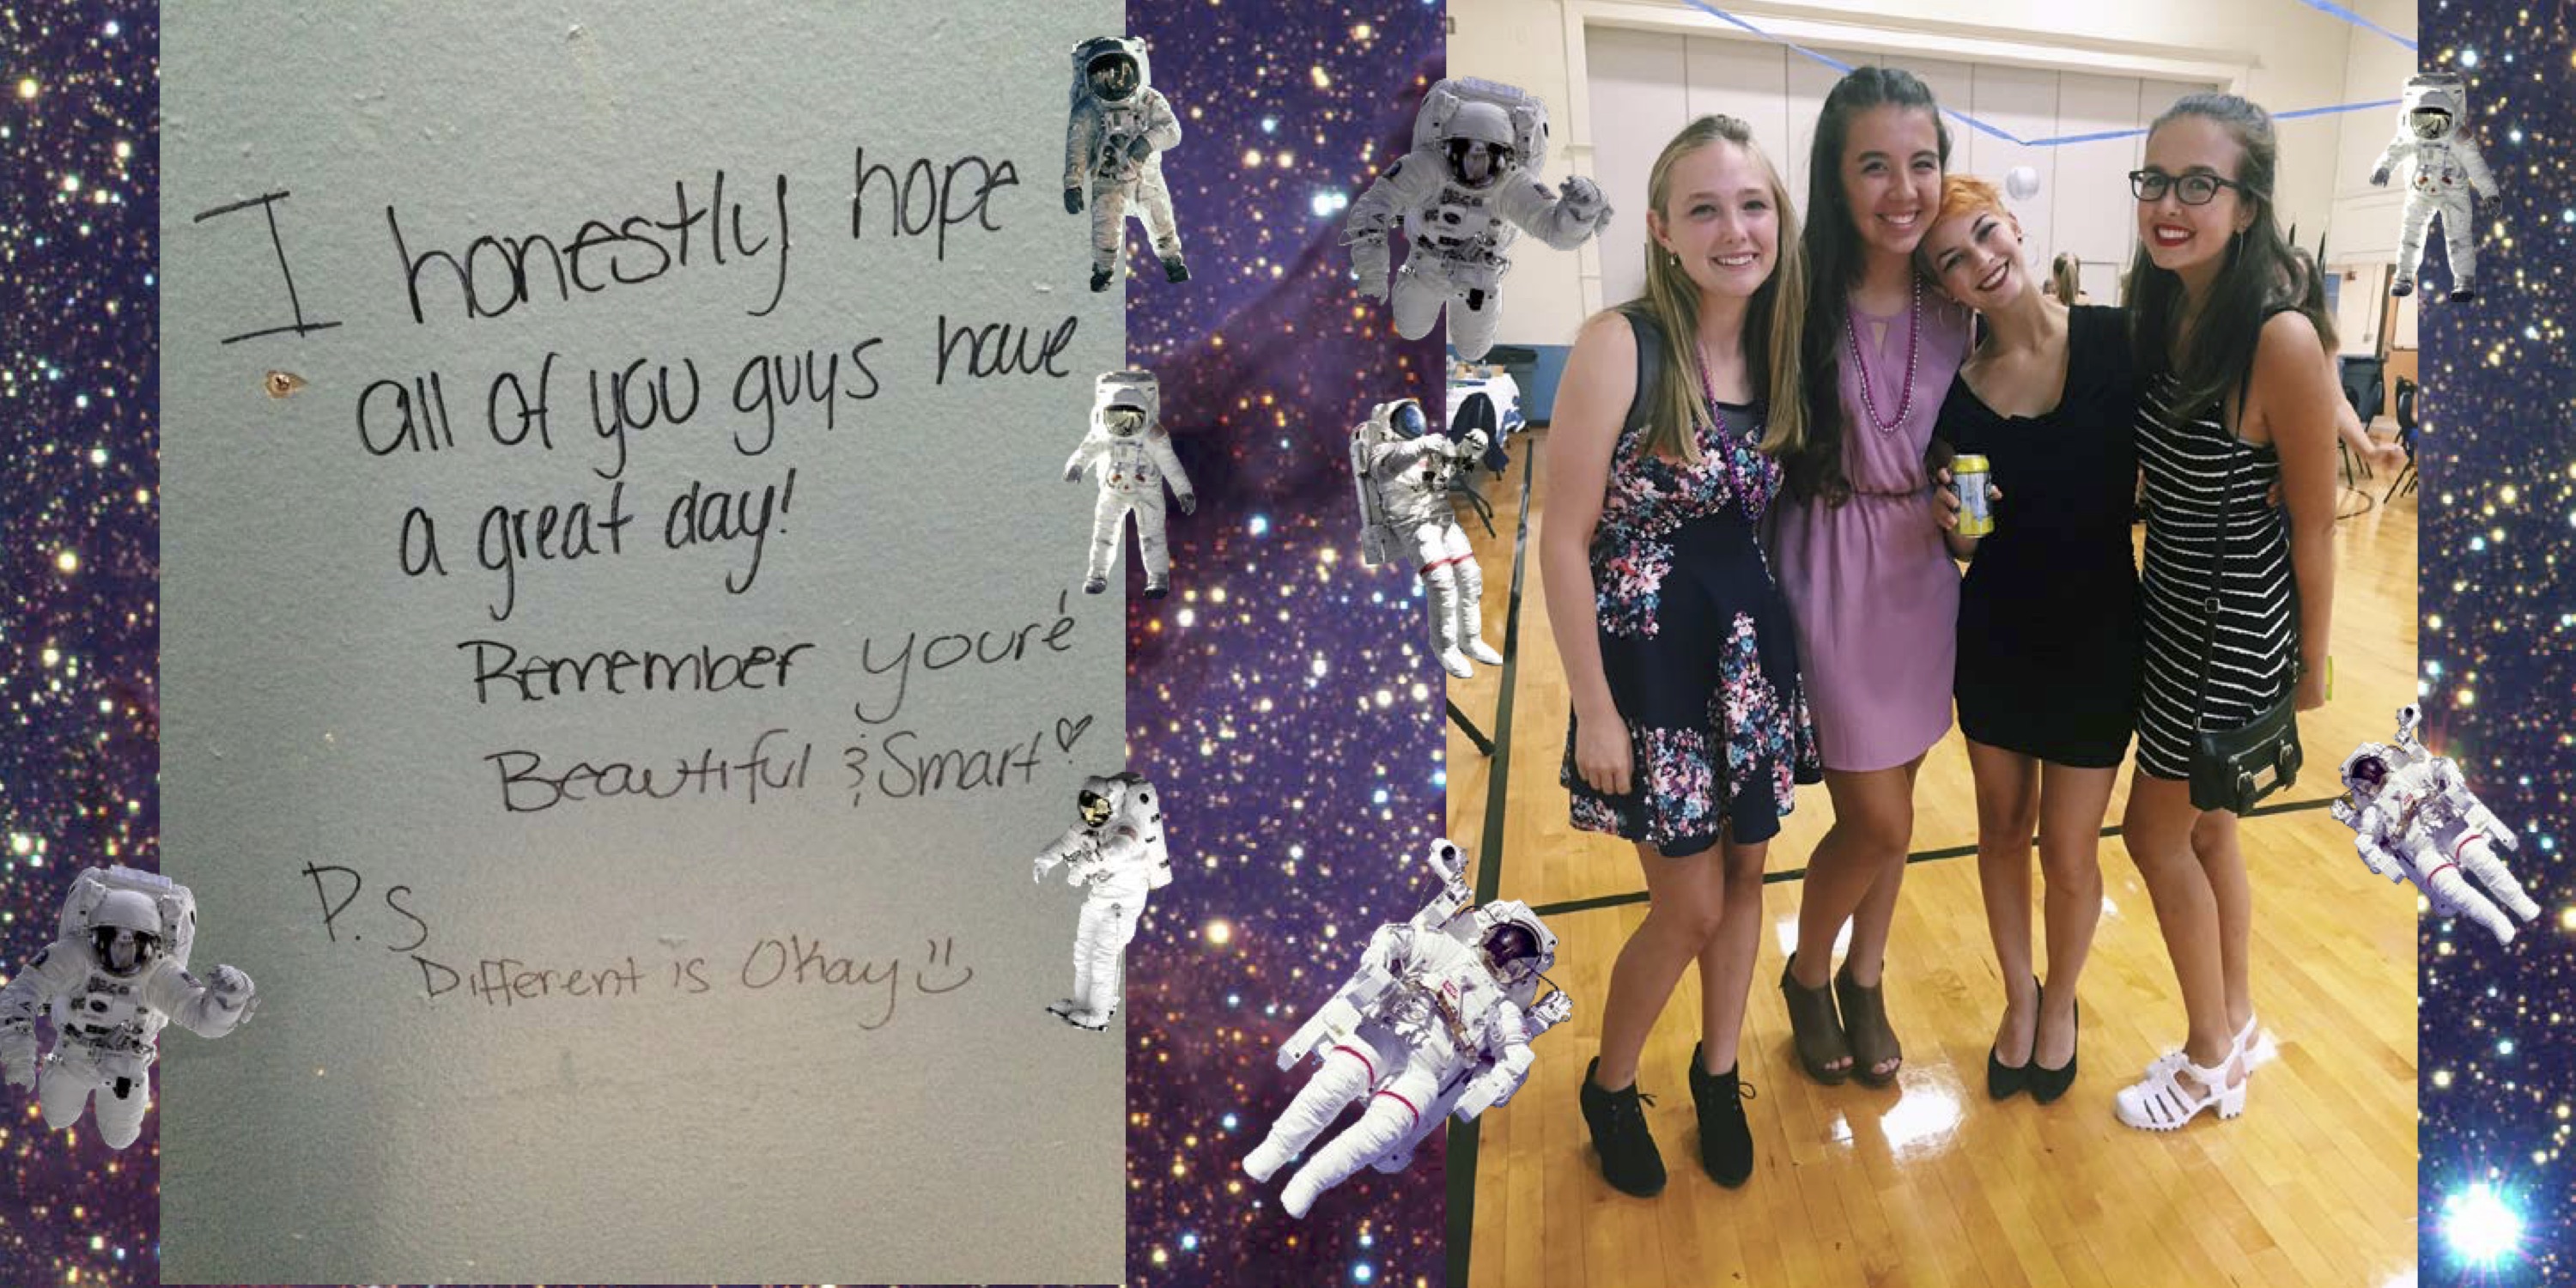 I honestly hope
all of you guys have
a great day!
Remember you're
Beautiful & Smart ♡
P.S
Different is Okay =)